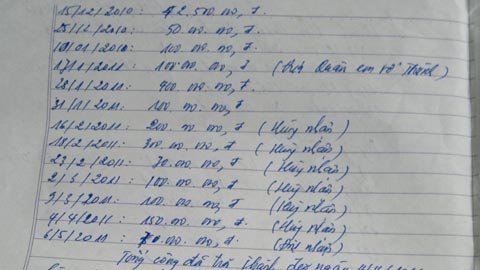 15/12/2010: 42.500.000, đ.
25/12/2010: 50.000.000, đ.
10/01/2010: 100.000.000, đ.
17/1/2011: 100.000.000, đ (Đưa Quân em vợ Thành)
28/1/2011: 400.000.000, đ.
31/1/2011: 100.000.000, đ
16/2/2011: 200.000.000, đ (Hủy nhận)
18/2/2011: 300.000.000, đ (Hủy nhận)
23/2/2011: 70.000.000, đ (Hủy nhận)
2/3/2011: 100.000.000, đ (Hủy nhận)
3/3/2011: 100.000.000, đ (Hủy nhận)
4/4/2011: 150.000.000, đ. (Hủy nhận)
6/5/2011: 70.000.000, đ. (nhận)
Tổng cộng đã trả đến ngày